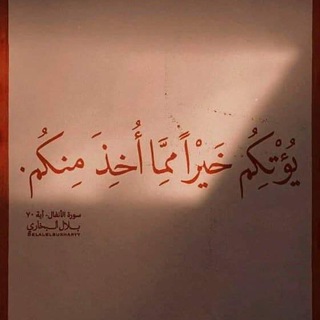 يُؤْتِكُم خَيْراً مِمَّا أُخِذَ مِنكُم.
سورة الأنفال - آية ٧٠
بلال البخاري
BELALELBUKHARYY